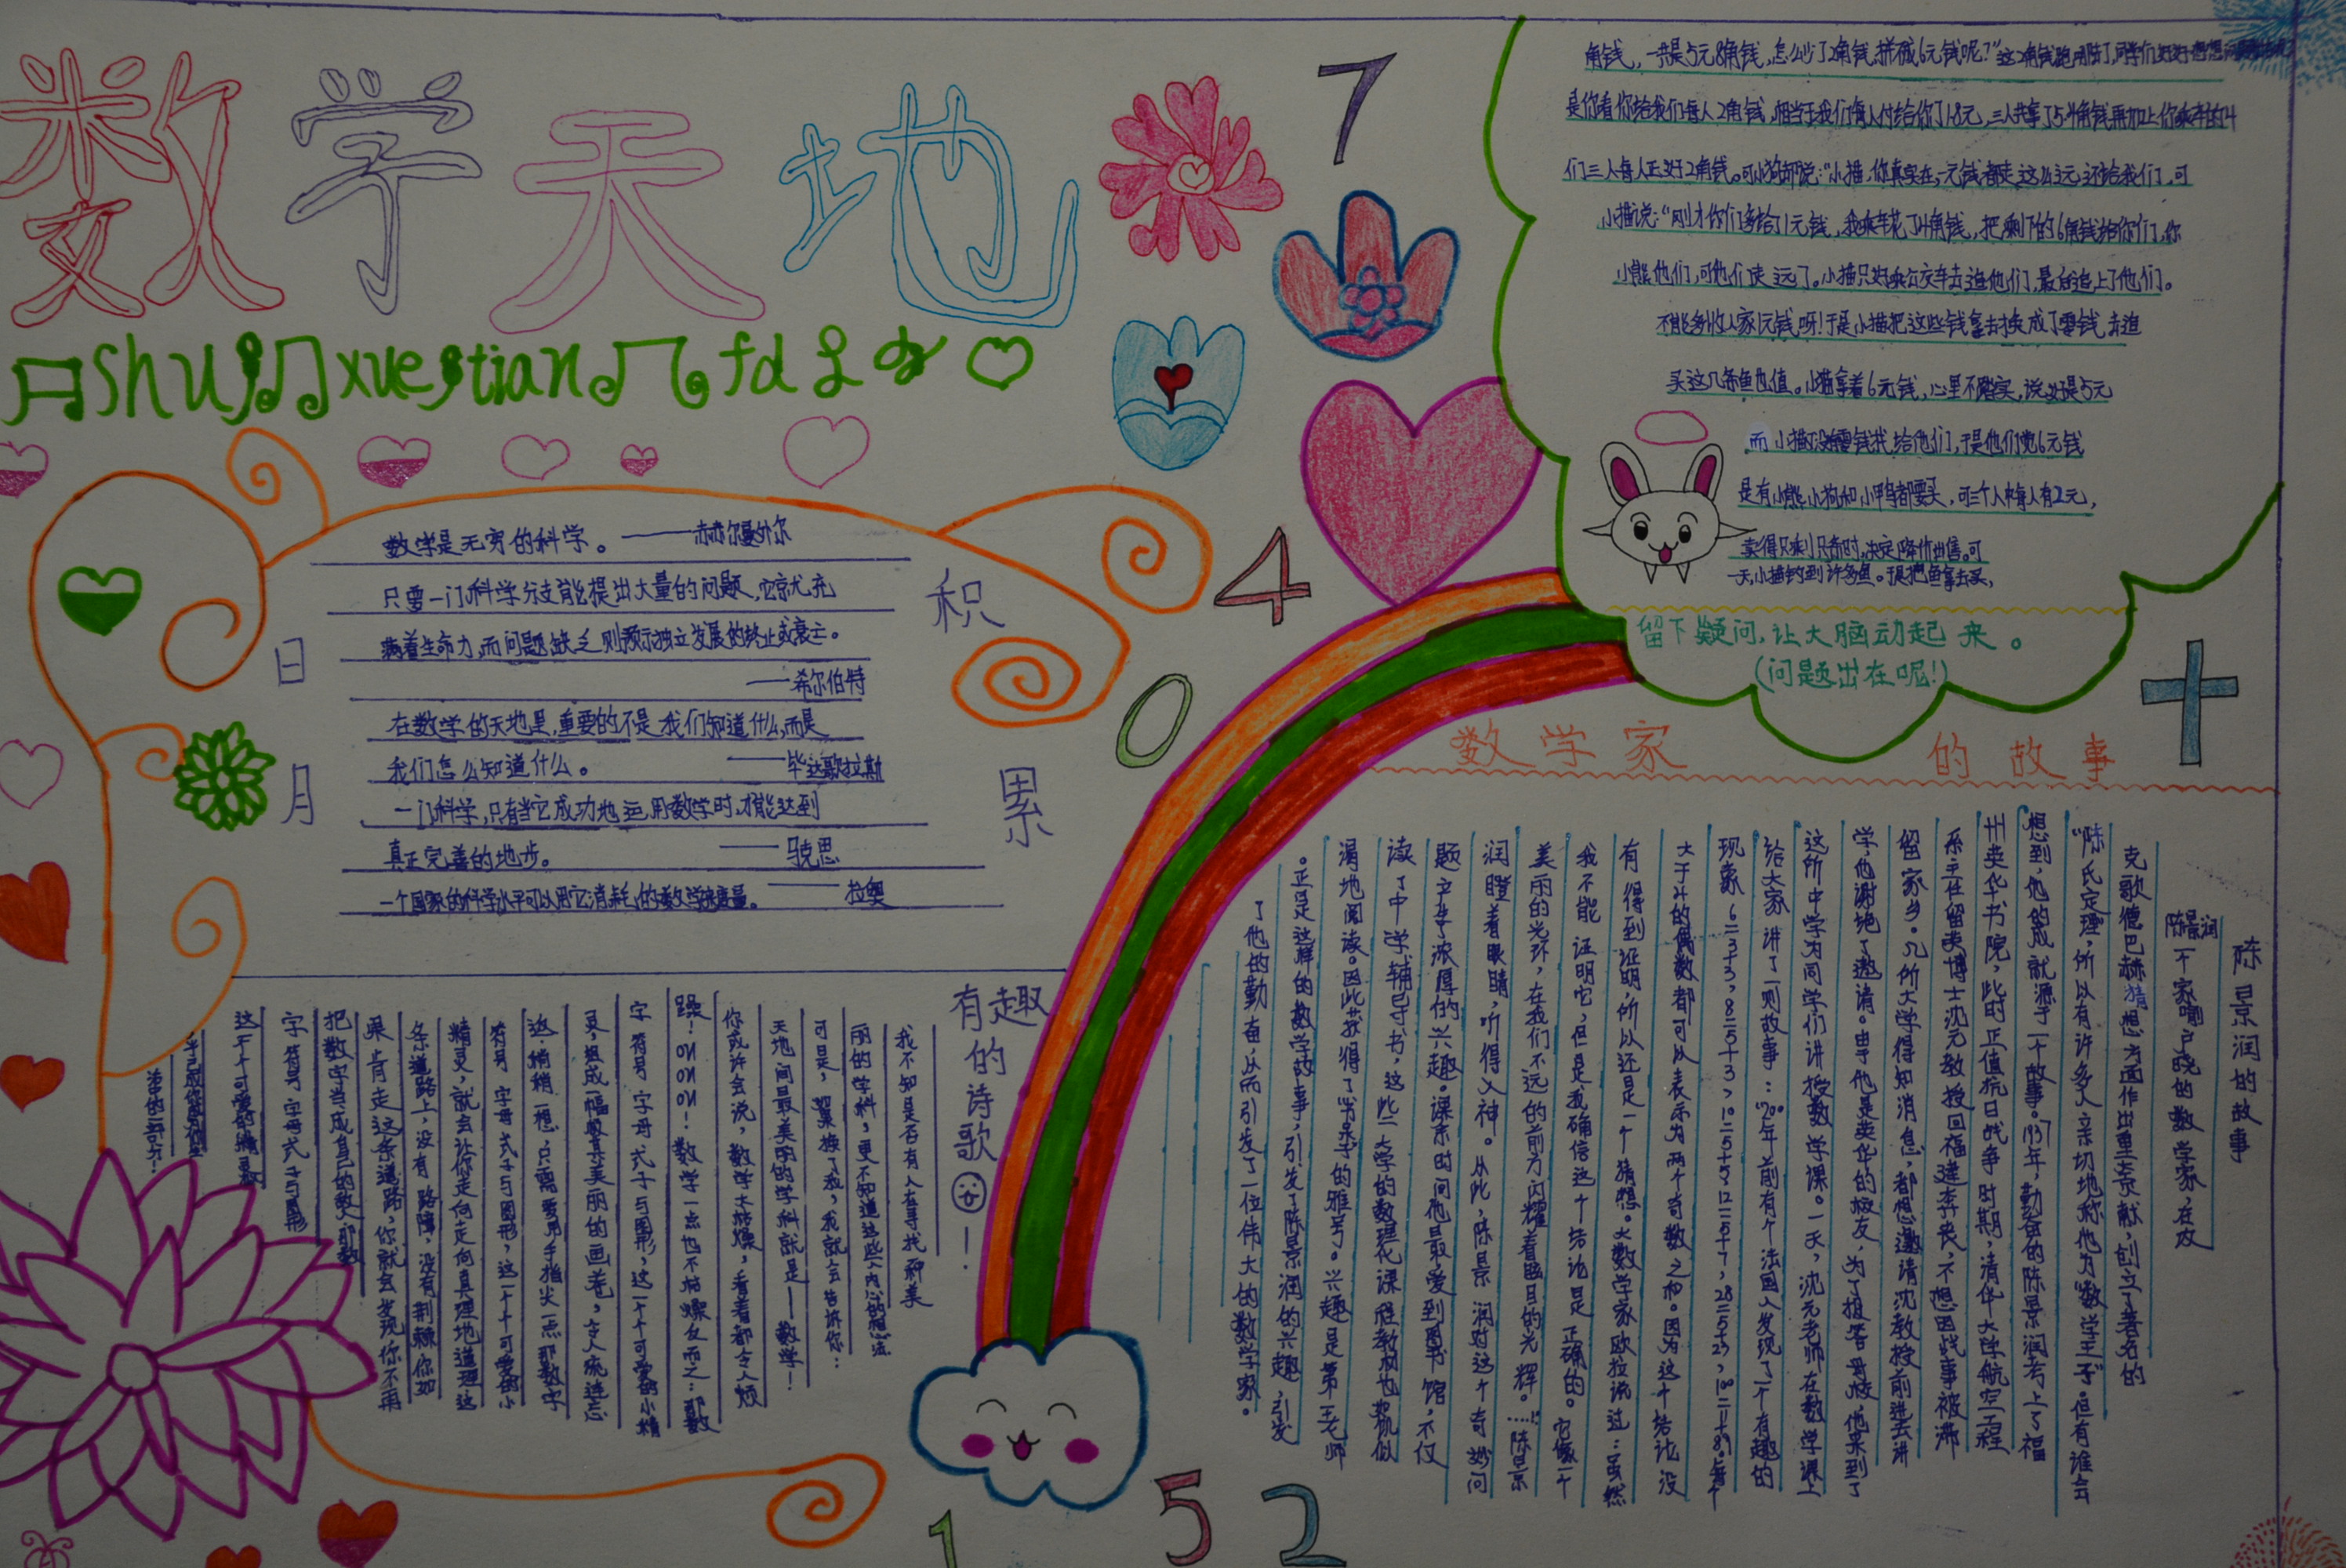 数学天地
shu xue tian
数学是无穷的科学。——赫尔曼外尔
只要一门科学分支能提出大量的问题,它就尤充
满着生命力,而问题缺乏则预示独立发展的终止或衰亡。
——希尔伯特
在数学的天地里,重要的不是我们知道什么,而是
我们怎么知道什么。——毕达歌拉斯
一门科学,只有当它成功地运用数学时,才能达到
真正完善的地步。——马克思
一个国家的科学水平可以用它消耗的数学来度量。——拉奥
日
月
积
累
7
4
0
十
1
5
2
一天,小猫钓到许多鱼。于是把鱼拿去买,
卖得只剩只条时,决定降价出售。可
是有小熊小狗和小鸭都要买,可三个人中每人有2元,
而小猫没有零钱找给他们,于是他们宽6元钱
买这几条鱼也值。小猫拿着6元钱,心里不踏实,说好是5元
不能多收人家1元钱呀!于是小猫把这些钱拿去换成了零钱,去追
小熊他们,可他们走远了。小猫只好乘公交车去追他们,最后追上了他们。
小猫说:“刚才你们多给了1元钱,我乘车花了4角钱,把剩下的6角钱给你们,你
们三人每人正好2角钱。可小狗却说:“小猫,你真实在,一元钱都走这么远还给我们,可
是你看你给我们每人2角钱,相当于我们每人付给你了1.8元,三人共拿了5.4角钱再加上你乘车的4
角钱,一共是5元8角钱,怎么少了2角钱拼成6元钱呢?”这2角钱跑哪去了,同学们好好想想
留下疑问,让大脑动起来。
(问题出在呢!)
数学家的故事
陈景润的故事
陈景润一个家喻户晓的数学家,在攻
克歌德巴赫猜想方面作出重大贡献,创立了著名的
“陈氏定理”,所以有许多人亲切地称他为“数学王子”。但有谁会
想到,他的成就源于一个故事。1937年,勤奋的陈景润考上了福
州英华书院,此时正值抗日战争时期,清华大学航空工程
系主任留英博士沈元教授回福建奔丧,不想因战事被滞
留家乡。几所大学得知消息,都想邀请沈教授前进去讲
学,他谢绝了邀请。由于他是英华的校友,为了报答母校,他来到了
这所中学为同学们讲授数学课。一天,沈元老师在数学课上
给大家讲了一则故事:“200年前有个法国人发现了一个有趣的
现象:6=3+3,8=5+3,10=5+5,12=5+7,28=5+23,100=11+89。每个
大于4的偶数都可以表示为两个奇数之和。因为这个结论没
有得到证明,所以还是一个猜想。大数学家欧拉说过:虽然
我不能证明它,但是我确信这个结论是正确的。它像一个
美丽的光环,在我们不远的前方闪耀着眩目的光辉。……”陈景
润瞪着眼睛,听得入神。从此,陈景润对这个奇妙问
题产生了浓厚的兴趣。课余时间他最爱到图书馆,不仅
读了中学辅导书,这些大学的数理化课程教材他也如饥似
渴地阅读。因此获得了“书呆子”的雅号。兴趣是第一老师
。正是这样的数学故事,引发了陈景润的兴趣,引发
了他的勤奋,从而引发了一位伟大的数学家。
有趣的诗歌!
我不知是否有人在寻找那美
丽的学科,更不知道这些人内心的想法
可是,如果换了我,我就会告诉你:
天地间最美丽的学科就是——数学!
你或许会说,数学太枯燥,看着都令人烦
躁!ON ON ON!数学一点也不枯燥反而之:那数
字符号字母式子与图形,这一个个可爱的小精
灵,组成一幅极其美丽的画卷,令人流连忘
返。稍稍一想,只需要用手指尖一点那数字
符号字母式子与图形,这一个个可爱的小
精灵,就会让你走向走向真理地道理这
条道路上,没有路障,没有荆棘,你如
果肯走这条道路,你就会发现你不再
把数学当成自己的敌人那数
字符号字母式子与图形
这一个个可爱的精灵
活的部分!